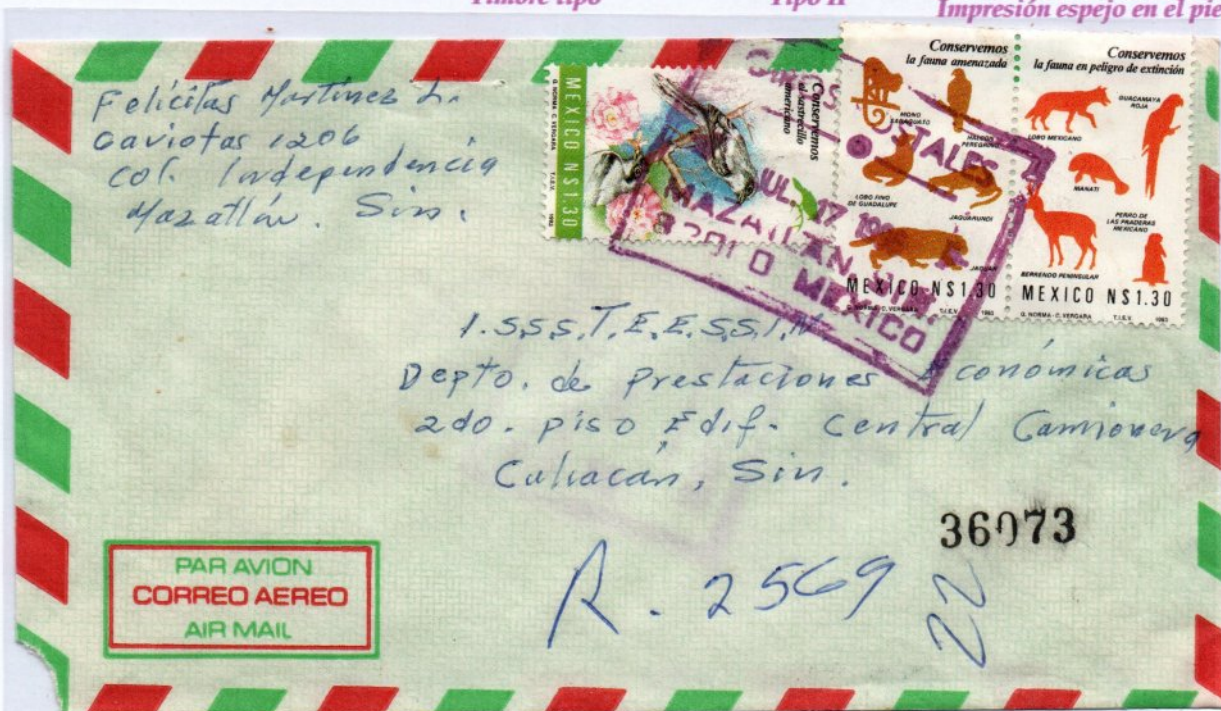 Timbre tipo
Tipo II
Impresión espejo en el pie
Felicitas Martinez L.
Gaviotas 1206
Col. Independencia
Mazatlán. Sin.
MEXICO N$1.30
G. NORMA - C. VERGARA T.I.E.V. 1993
Conservemos
el sastrecillo
americano
Conservemos
la fauna amenazada
MONO
SARAGUATO
HALCON
PEREGRINO
LOBO FINO
DE GUADALUPE
JAGUARUNDI
JAGUAR
MEXICO N$1.30
G. NORMA - C. VERGARA T.I.E.V. 1993
Conservemos
la fauna en peligro de extinción
LOBO MEXICANO
GUACAMAYA
ROJA
MANATI
PERRO DE
LAS PRADERAS
MEXICANO
BERRENDO PENINSULAR
MEXICO N$1.30
G. NORMA - C. VERGARA T.I.E.V. 1993
POSTALES
JUL. 17
MAZATLAN, SIN.
MEXICO
I.S.S.S.T.E.E.S.S.I.N
Depto. de prestaciones Económicas
2do. piso Edif. Central Camionera
Culiacán, Sin.
36073
R. 2569
22
PAR AVION
CORREO AEREO
AIR MAIL